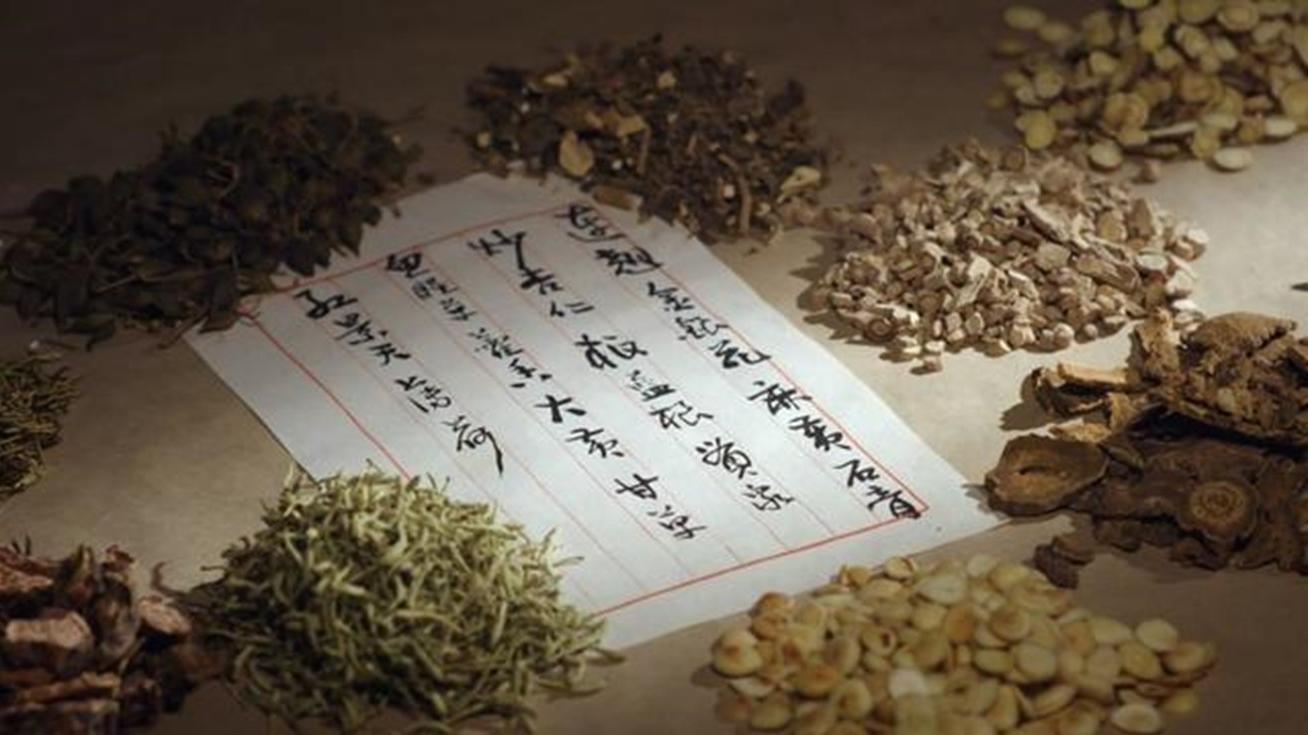 连翘 金银花 麻黄 石膏
炒杏仁 板蓝根 绵马
鱼腥草 藿香 大黄 甘草
红景天 薄荷